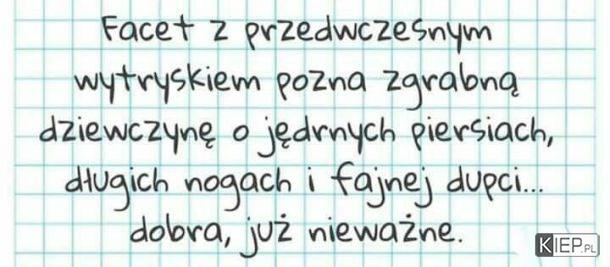 Facet z przedwczesnym
wytryskiem pozna zgrabną
dziewczynę o jędrnych piersiach,
długich nogach i fajnej dupci...
dobra, już nieważne.
KIEP.PL